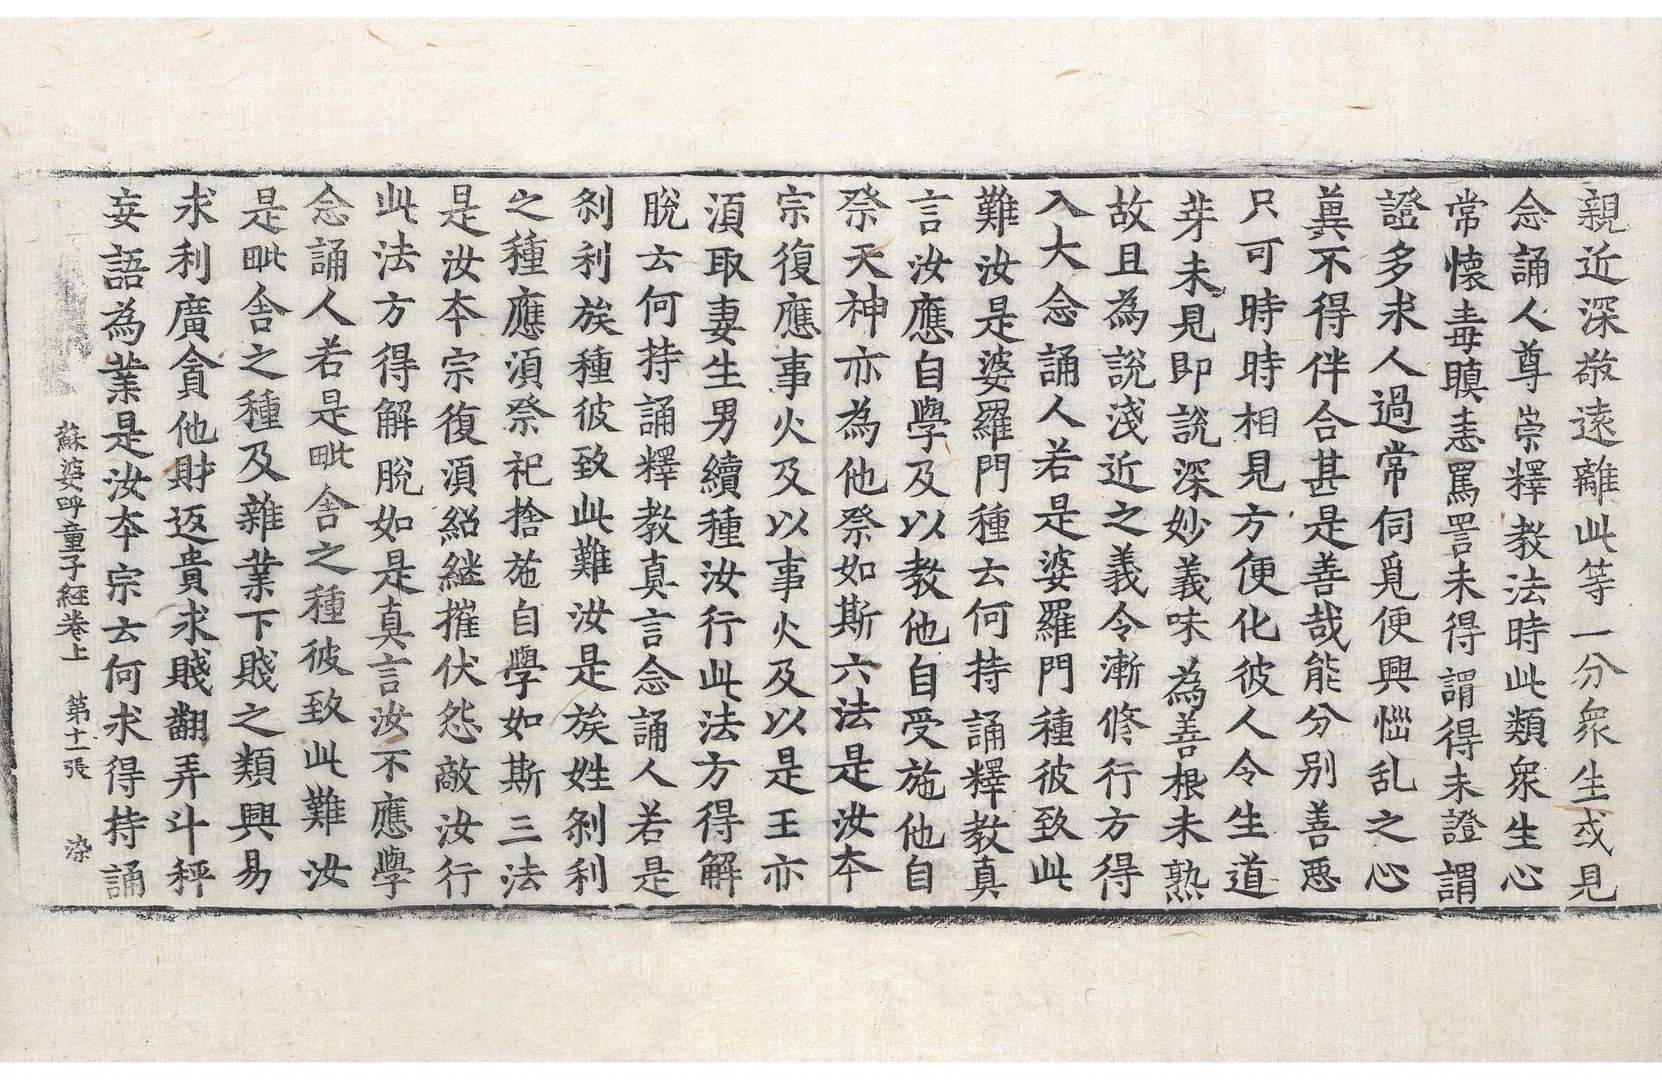 親近深敬遠離此等一分衆生或見
念誦人尊崇釋教法時此類衆生心
常懷毒瞋恚罵詈未得謂得未證謂
證多求人過常伺覓便興惱乱之心
冀不得伴合甚是善哉能分別善惡
只可時時相見方便化彼人令生道
芽未見即説深妙義味為善根未熟
故且為説淺近之義令漸修行方得
入大念誦人若是婆羅門種彼致此
難汝是婆羅門種云何持誦釋教真
言汝應自學及以教他自受施他自
祭天神亦為他祭如斯六法是汝本
宗復應事火及以事火及以是王亦
須取妻生男續種汝行此法方得解
脫云何持誦釋教真言念誦人若是
刹利族種彼致此難汝是族姓刹利
之種應須祭祀捨施自學如斯三法
是汝本宗復須紹継摧伏怨敵汝行
此法方得解脫如是真言汝不應學
念誦人若是毗舍之種彼致此難汝
是毗舍之種及雜業下賤之類興易
求利廣貪他財返貴求賤翻弄斗秤
妄語為業是汝本宗云何求得持誦
蘇婆呼童子經卷上 第十一張 染